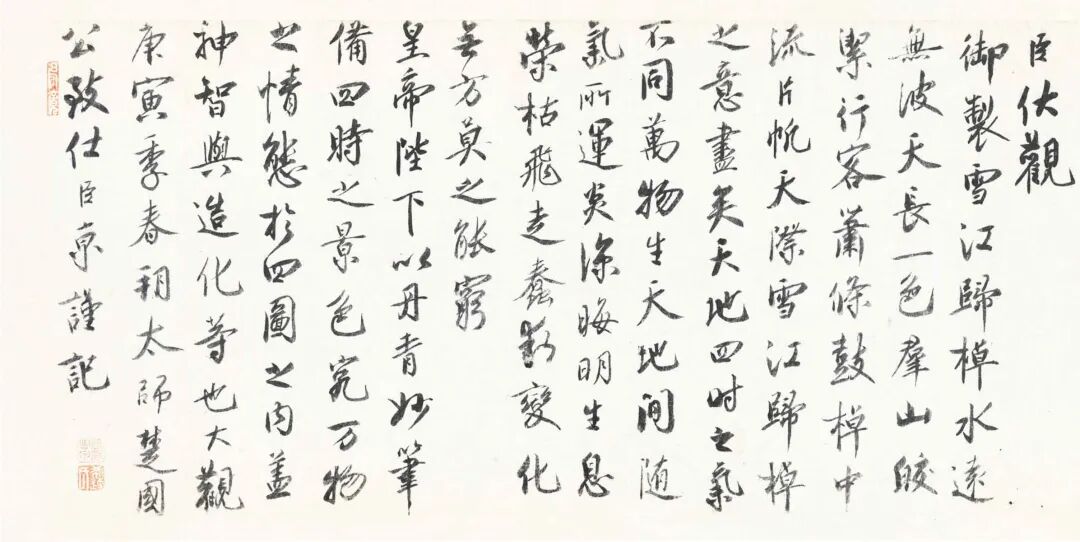 臣伏觀
御製雪江歸棹水遠
無波天長一色羣山皎
潔行客蕭條鼓棹中
流片帆天際雪江歸棹
之意盡矣天地四時之氣
不同萬物生天地間随
氣所運炎涼晦明生息
榮枯飛走蠢動變化
無方莫之能窮
皇帝陛下以丹青妙筆
備四時之景色究万物
之情態於四圖之内盖
神智與造化等也大觀
庚寅季春朔太師楚國
公致仕臣京謹記